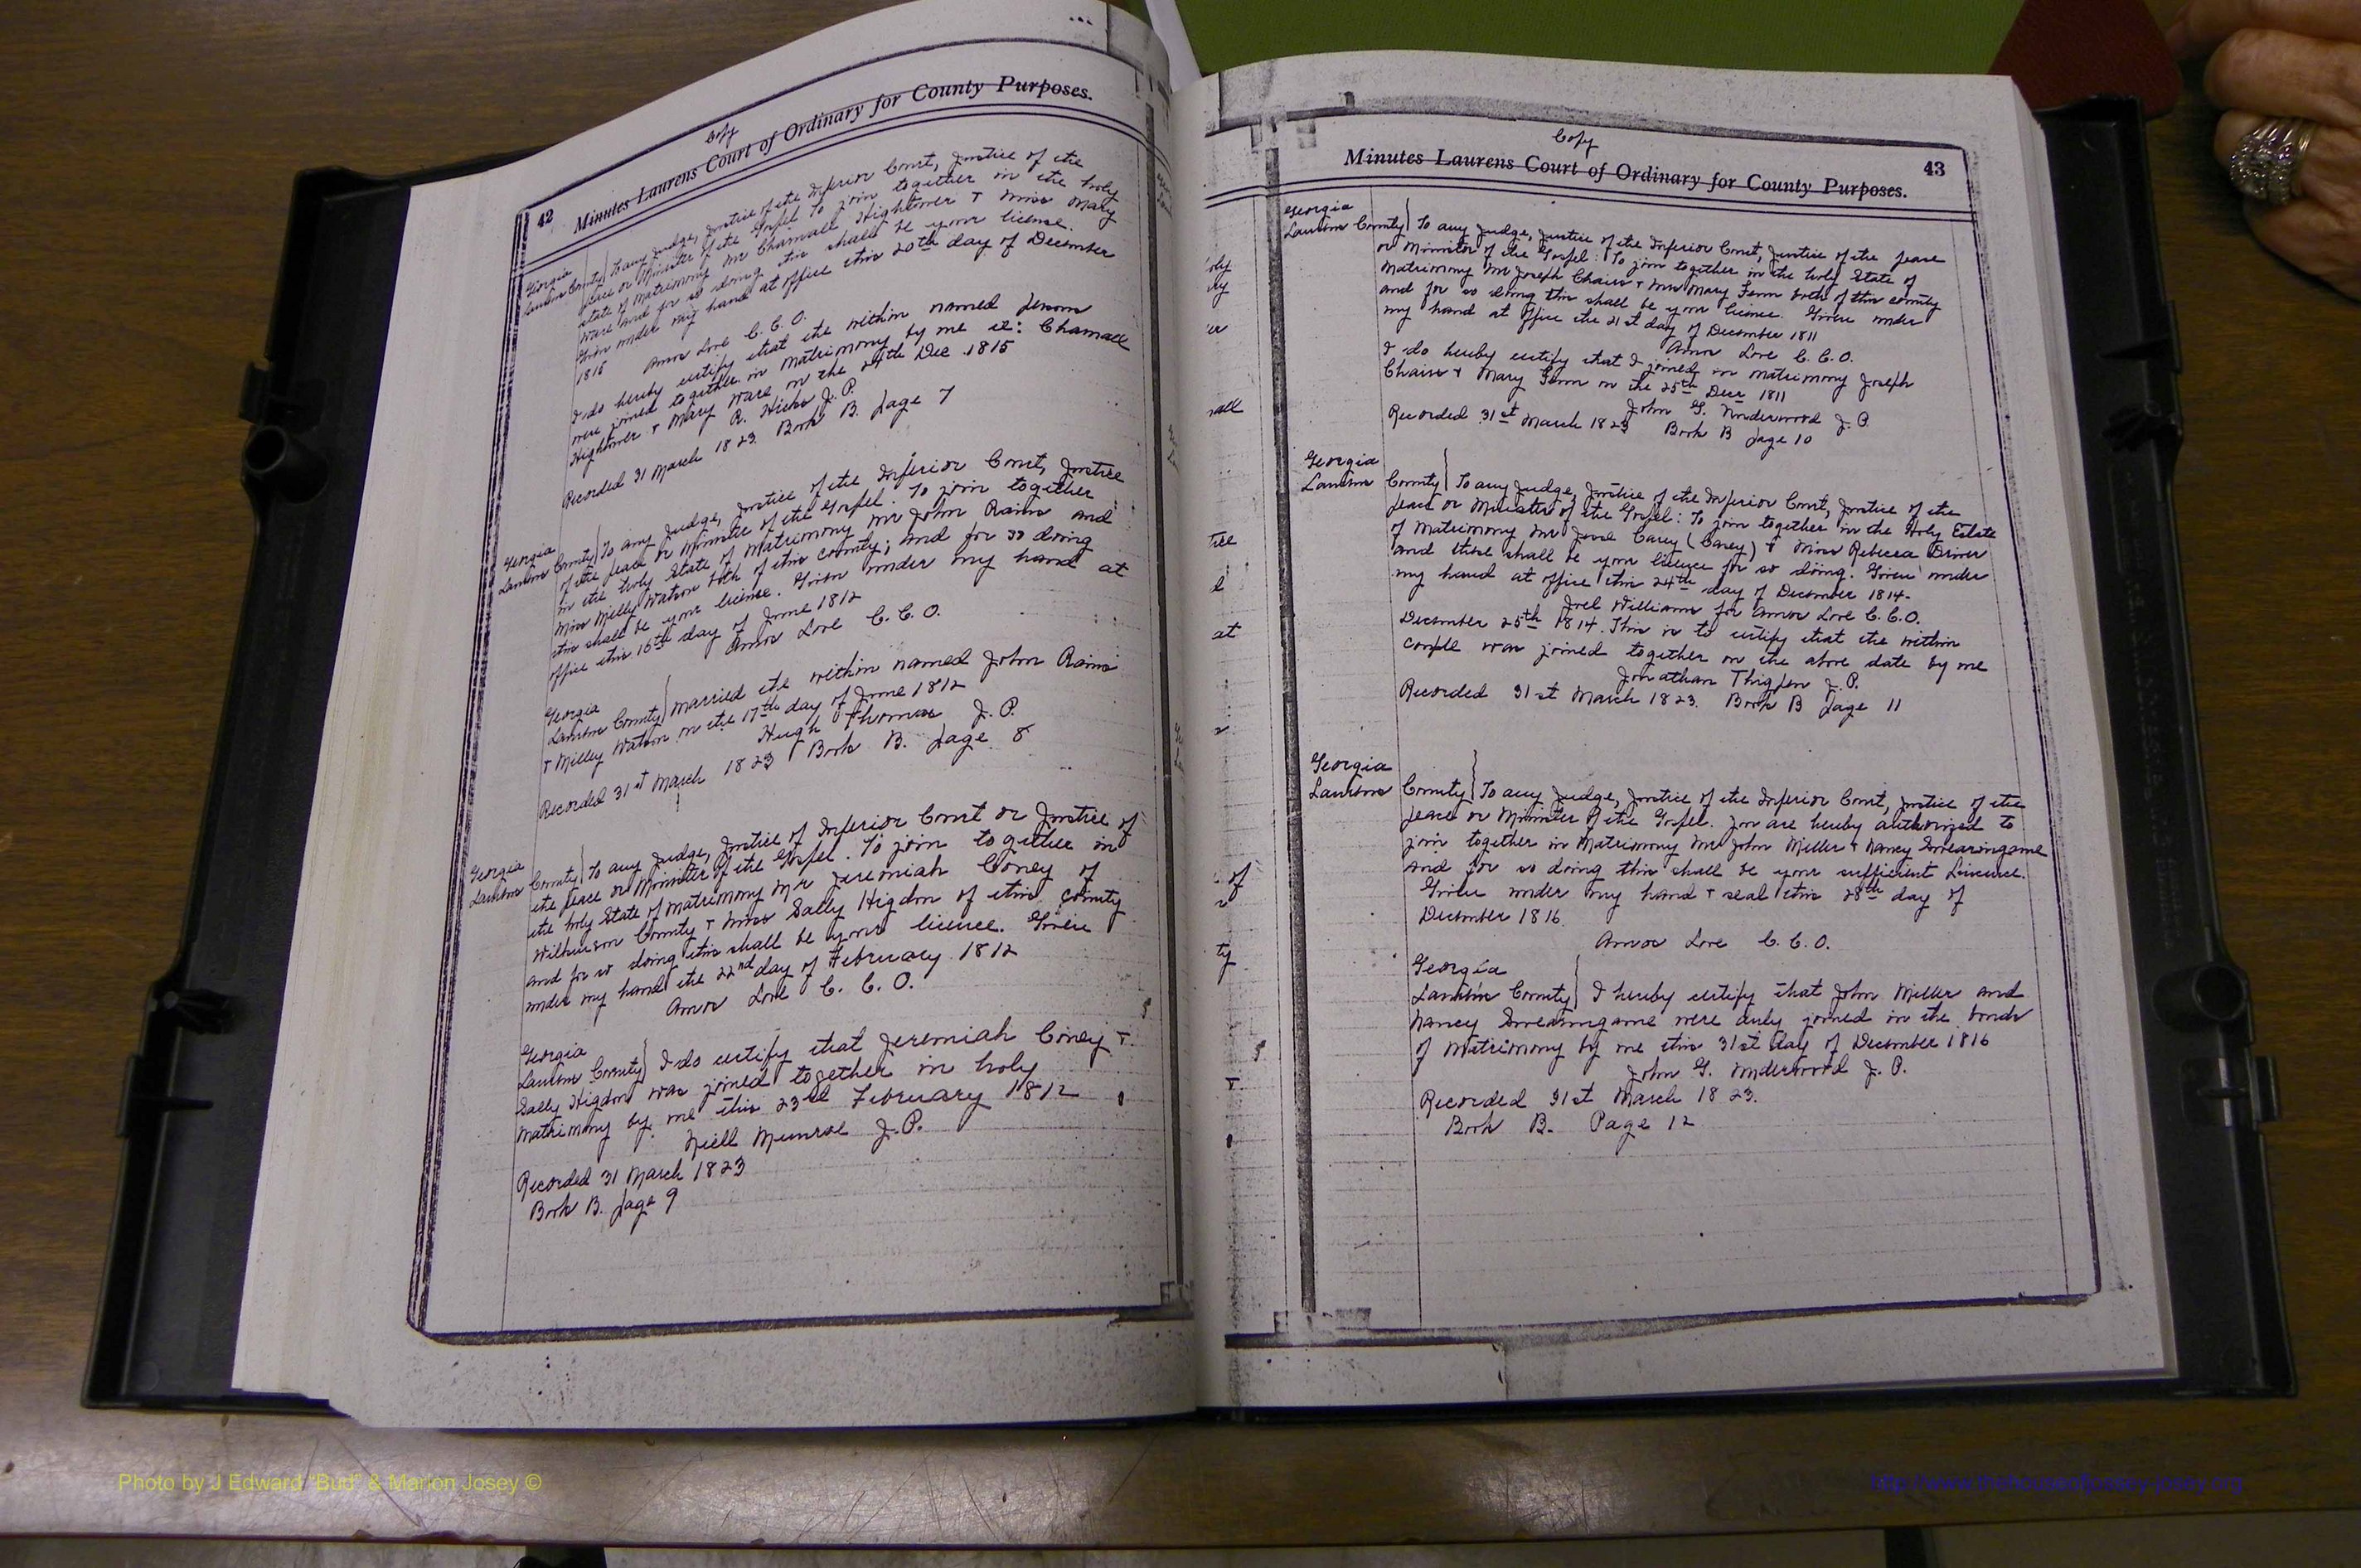 42
Copy
Minutes Laurens Court of Ordinary for County Purposes.
Georgia
Laurens County } To any Judge, Justice of the Inferior Court, Justice of the
peace or Minister of the Gospel To join together in the holy
state of Matrimony Mr Charnall Hightower & Miss Mary
Ware and for so doing this shall be your license.
Given under my hand at office this 20th day of December
1815 Amos Love C. C. O.
I do hereby certify that the within named persons
were joined together in matrimony by me it: Charnall
Hightower & Mary Ware on the 24th Dec 1815
R. Hicks J. P.
Recorded 31 March 1823 Book B. page 7
Georgia
Laurens County } To any Judge, Justice of the Inferior Court, Justice
of the peace or Minister of the Gospel: To join together
in the holy State of Matrimony Mr John Rains and
Miss Milly Watson both of this county; and for so doing
this shall be your license. Given under my hand at
office this 16th day of June 1812
Amos Love C. C. O.
Georgia
Laurens County } married the within named John Rains
& Milley Watson on the 17th day of June 1812
Hugh Thomas J. P.
Recorded 31st March 1823 Book B. page 8
Georgia
Laurens County } To any Judge, Justice of Inferior Court or Justice of
the peace or Minister of the Gospel. To join together in
the holy State of Matrimony Mr Jeremiah Coney of
Wilkinson County & Miss Sally Higdon of this county
and for so doing this shall be your licence. Given
under my hand the 22nd day of February 1812
Amos Love C. C. O.
Georgia
Laurens County } I do certify that Jeremiah Coney &
Sally Higdon was joined together in holy
matrimony by me this 23rd February 1812
Niell Munroe J. P.
Recorded 31 March 1823
Book B. page 9
43
Copy
Minutes Laurens Court of Ordinary for County Purposes.
Georgia
Laurens County } To any Judge, Justice of the Inferior Court, Justice of the peace
or Minister of the Gospel: To join together in the holy State of
Matrimony Mr Joseph Chairs & Mrs Mary Fenn both of this county
and for so doing this shall be your licence. Given under
my hand at office the 21st day of December 1811
Amos Love C. C. O.
I do hereby certify that I joined in matrimony Joseph
Chairs & Mary Fenn on the 25th Decr 1811
John G. Underwood J. P.
Recorded 31st March 1823 Book B page 10
Georgia
Laurens County } To any Judge, Justice of the Inferior Court, Justice of the
peace or Minister of the Gospel: To join together in the Holy Estate
of Matrimony Mr Jesse Carey (Caney) & Miss Rebecca Driver
and these shall be your licence for so doing. Given under
my hand at office this 24th day of December 1814.
Joel Williams for Amos Love C. C. O.
December 25th 1814. This is to certify that the within
couple was joined together on the above date by me
Jonathan Thigpen J. P.
Recorded 31st March 1823. Book B page 11
Georgia
Laurens County } To any Judge, Justice of the Inferior Court, Justice of the
peace or Minister of the Gospel. You are hereby authorized to
join together in Matrimony Mr John Miller & Nancy Swearingame
and for so doing this shall be your sufficient Lisence.
Given under my hand & seal this 28th day of
December 1816.
Amos Love C. C. O.
Georgia
Laurens County } I hereby certify that John Miller and
Nancy Swearingame were duly joined in the bonds
of Matrimony by me this 31st day of December 1816
John G. Underwood J. P.
Recorded 31st March 1823.
Book B. Page 12
Photo by J Edward "Bud" & Marion Josey ©
http://www.thehouseofjossey-josey.org